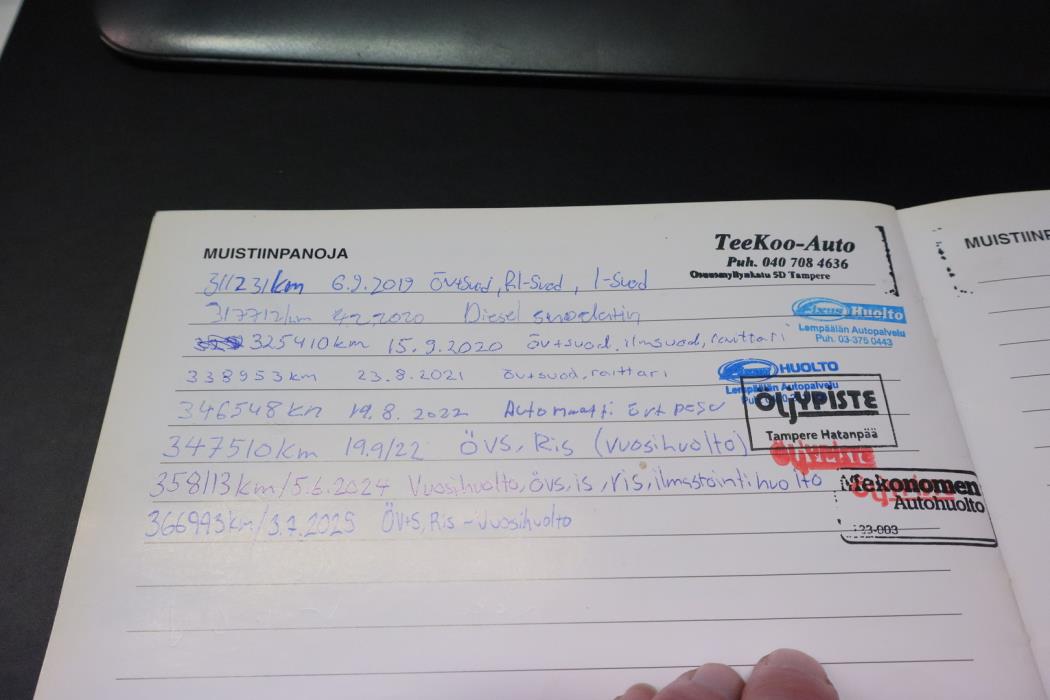 MUISTIINPANOJA
TeeKoo-Auto
Puh. 040 708 4636
5D Tampere
311231km 6.9.2019 Öv+suod, RI-Suod, I-Suod
317712km 4.2.2020 Diesel suodatin
Fixus Huolto
Lempäälän Autopalvelu
Puh. 03-375 0443
325410km 15.9.2020 öv+suod, ilmsuod, raittari
338953km 23.8.2021 öv+suod, raittari
HUOLTO
Lempäälän Autopalvelu
346548km 19.8.2022 Automaatti öv+ pesu
ÖLJYPISTE
Tampere Hatanpää
347510km 19.9/22 ÖVS, Ris (vuosihuolto)
358113km/5.6.2024 Vuosihuolto, övs, is, ris, ilmastointihuolto
Mekonomen
Autohuolto
366993km/3.7.2025 ÖV+S, Ris - Vuosihuolto